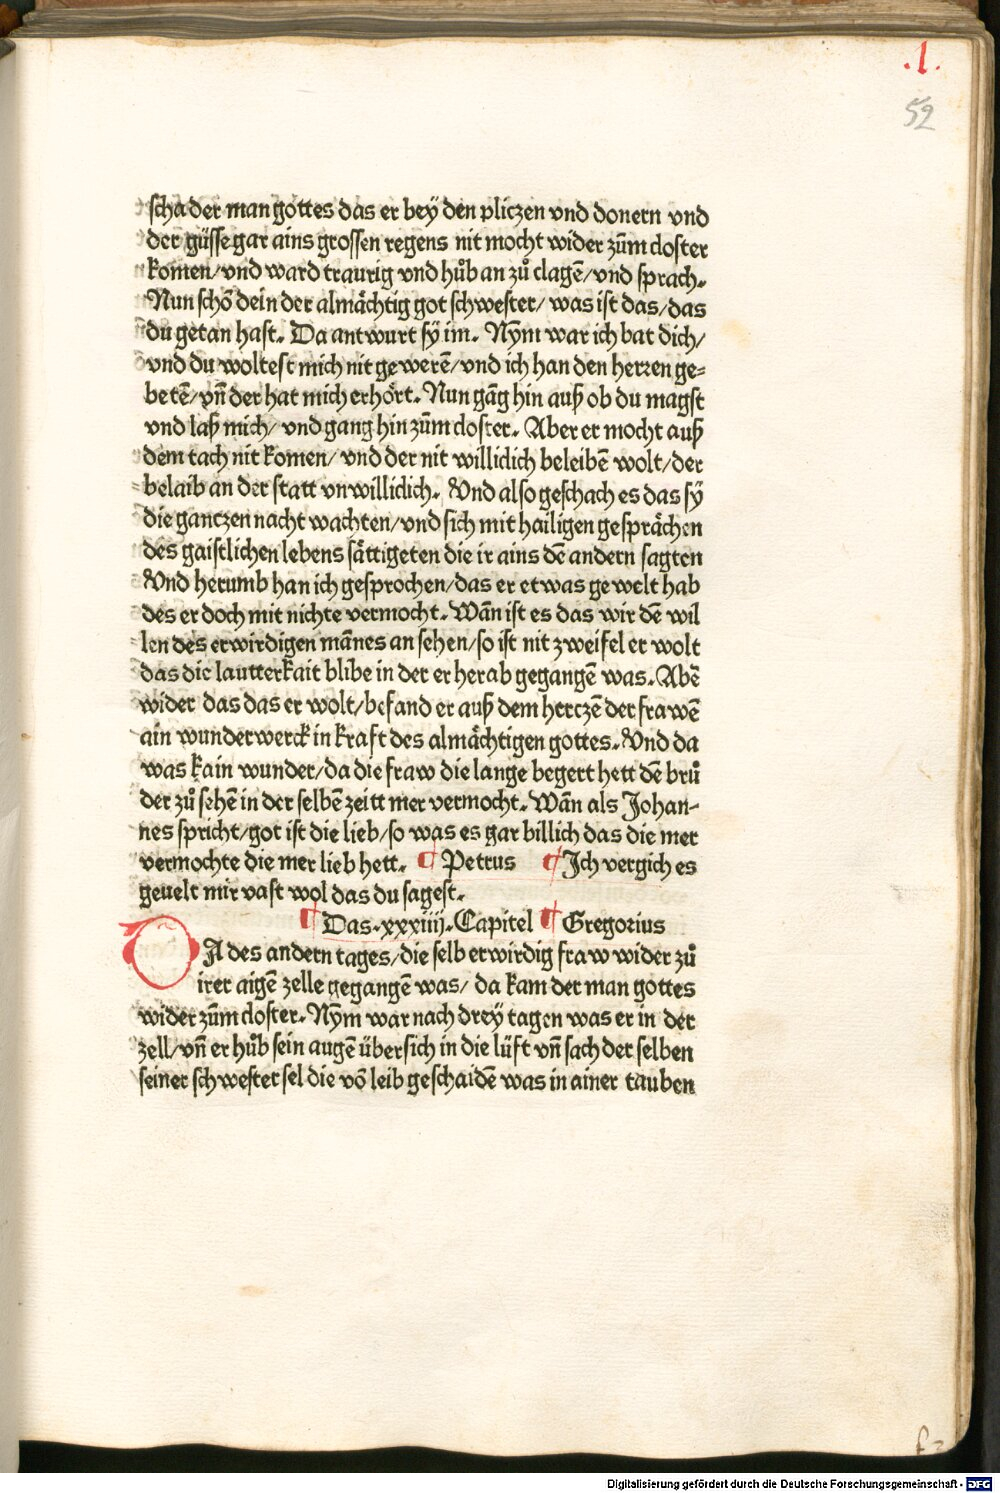 .l.
52
scha der man gottes das er bey̆ den pliczen vnd donern vnd
der güsse gar ains grossen regens nit mocht wider zům closter
komen/ vnd ward traurig vnd hůb an zů clagē/ vnd sprach.
Nun schō dein der almächtig got schwester/ was ist das/ das
du getan hast. Da antwurt sy̆ im. Nym̄ war ich bat dich/
vnd du woltest mich nit gewerē/ vnd ich han den herren ge⸗
betē/ vn̄ der hat mich erhört. Nun gāg hin auß ob du magst
vnd laß mich/ vnd gang hin zům closter. Aber er mocht auß
dem tach nit komen/ vnd der nit williclich beleibē wolt/ der
belaib an der statt vnwilliclich. Vnd also geschach es das sy̆
die ganczen nacht wachten/ vnd sich mit hailigen gesprächen
des gaistlichen lebens sättigeten die ir ains dē andern sagten
Vnd herumb han ich gesprochen/ das er etwas gewelt hab
des er doch mit nichte vermocht. Wān ist es das wir dē wil
len des erwirdigen mānes an sehen/ so ist nit zweifel er wolt
das die lautterkait blibe in der er herab gegangē was. Abē
wider das das er wolt/ befand er auß dem herczē der frawē
ain wunderwerck in kraft des almächtigen gottes. Vnd da
was kain wunder/ da die fraw die lange begert hett dē brů
der zů sehē in der selbē zeitt mer vermocht. Wān als Johan-
nes spricht/ got ist die lieb/ so was es gar billich das die mer
vermochte die mer lieb hett. ¶ Petrus ¶ Ich vergich es
geuelt mir vast wol das du sagest.
¶ Das .xxxiiij. Capitel ¶ Gregorius
DA des andern tages/ die selb erwirdig fraw wider zů
irer aigē zelle gegangē was/ da kam der man gottes
wider zům closter. Nym̄ war nach drey̆ tagen was er in der
zell/ vn̄ er hůb sein augē übersich in die lüft vn̄ sach der selben
seiner schwester sel die vō leib geschaidē was in ainer tauben
Digitalisierung gefördert durch die Deutsche Forschungsgemeinschaft - DFG